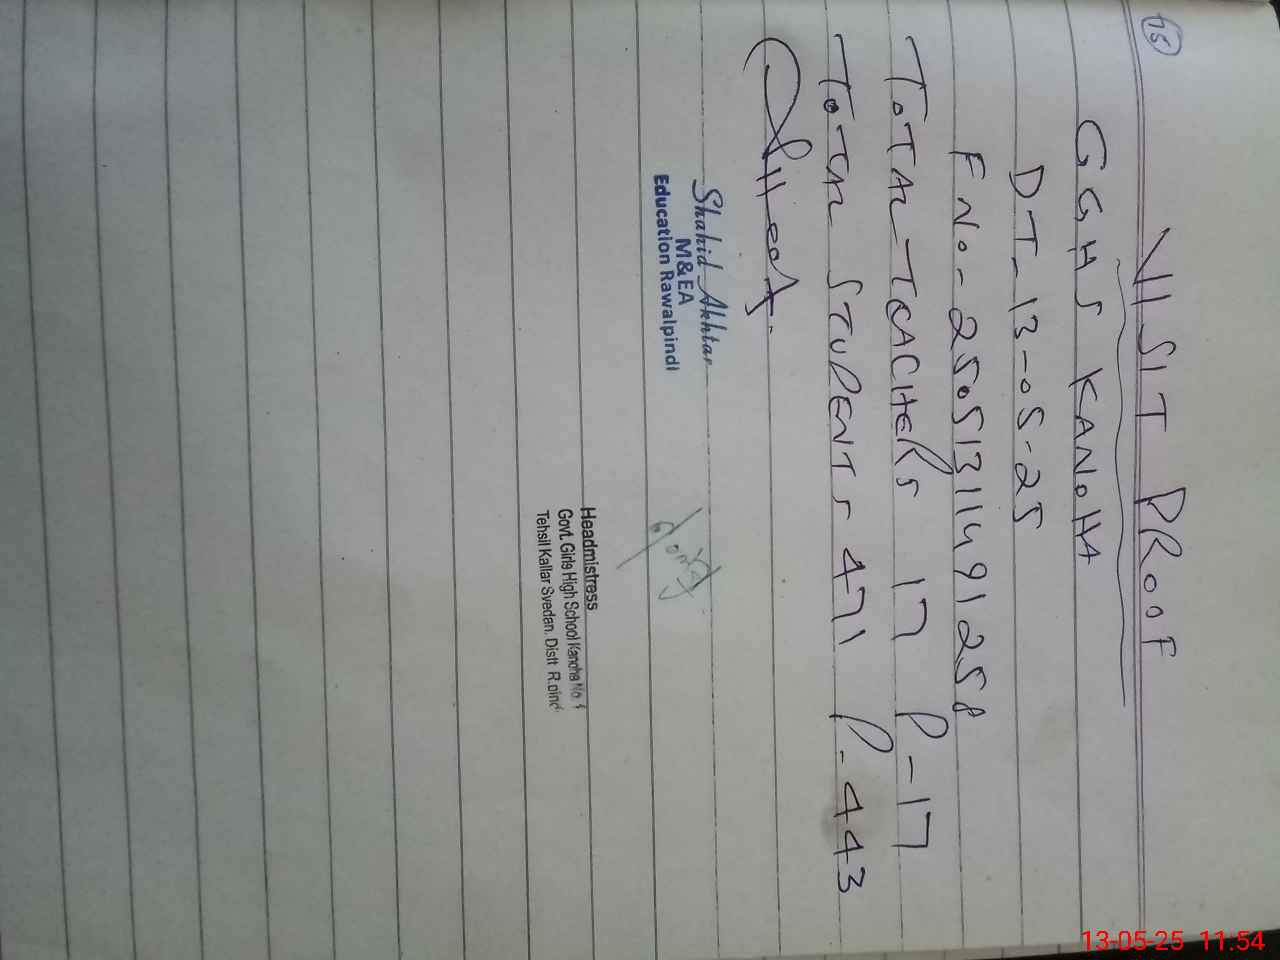 75
VISIT PROOF
GGHS KANOHA
DT-13-05-25
F No- 25051311491258
TOTAL TEACHERS 17 P-17
TOTAL STUDENTS 471 P-443
Shahid Akhtar
M&EA
Education Rawalpindi
Headmistress
Govt. Girls High School Kanoha No. 1
Tehsil Kallar Syedan. Distt R.pindi
13-05-25 11.54